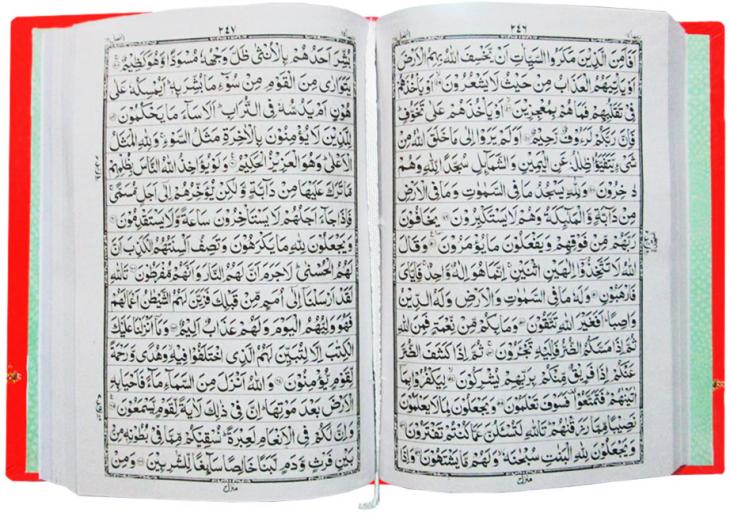 ٢٤٦
اَفَاَمِنَ الَّذِيْنَ مَكَرُوا السَّيِّاٰتِ اَنْ يَّخْسِفَ اللّٰهُ بِهِمُ الْاَرْضَ
اَوْ يَاْتِيَهُمُ الْعَذَابُ مِنْ حَيْثُ لَا يَشْعُرُوْنَ اَوْ يَاْخُذَهُمْ
فِيْ تَقَلُّبِهِمْ فَمَا هُمْ بِمُعْجِزِيْنَ اَوْ يَاْخُذَهُمْ عَلٰى تَخَوُّفٍ
فَاِنَّ رَبَّكُمْ لَرَءُوْفٌ رَّحِيْمٌ اَوَلَمْ يَرَوْا اِلٰى مَا خَلَقَ اللّٰهُ مِنْ
شَيْءٍ يَّتَفَيَّؤُا ظِلٰلُهٗ عَنِ الْيَمِيْنِ وَالشَّمَآئِلِ سُجَّدًا لِّلّٰهِ وَهُمْ
دٰخِرُوْنَ وَلِلّٰهِ يَسْجُدُ مَا فِي السَّمٰوٰتِ وَمَا فِي الْاَرْضِ
مِنْ دَآبَّةٍ وَّالْمَلٰٓئِكَةُ وَهُمْ لَا يَسْتَكْبِرُوْنَ يَخَافُوْنَ
رَبَّهُمْ مِّنْ فَوْقِهِمْ وَيَفْعَلُوْنَ مَا يُؤْمَرُوْنَ وَقَالَ
اللّٰهُ لَا تَتَّخِذُوْٓا اِلٰهَيْنِ اثْنَيْنِ اِنَّمَا هُوَ اِلٰهٌ وَّاحِدٌ فَاِيَّايَ
فَارْهَبُوْنِ وَلَهٗ مَا فِي السَّمٰوٰتِ وَالْاَرْضِ وَلَهُ الدِّيْنُ
وَاصِبًا اَفَغَيْرَ اللّٰهِ تَتَّقُوْنَ وَمَا بِكُمْ مِّنْ نِّعْمَةٍ فَمِنَ اللّٰهِ
ثُمَّ اِذَا مَسَّكُمُ الضُّرُّ فَاِلَيْهِ تَجْـَٔرُوْنَ ثُمَّ اِذَا كَشَفَ الضُّرَّ
عَنْكُمْ اِذَا فَرِيْقٌ مِّنْكُمْ بِرَبِّهِمْ يُشْرِكُوْنَ لِيَكْفُرُوْا بِمَآ
اٰتَيْنٰهُمْ فَتَمَتَّعُوْا فَسَوْفَ تَعْلَمُوْنَ وَيَجْعَلُوْنَ لِمَا لَا يَعْلَمُوْنَ
نَصِيْبًا مِّمَّا رَزَقْنٰهُمْ تَاللّٰهِ لَتُسْـَٔلُنَّ عَمَّا كُنْتُمْ تَفْتَرُوْنَ
وَيَجْعَلُوْنَ لِلّٰهِ الْبَنٰتِ سُبْحٰنَهٗ وَلَهُمْ مَّا يَشْتَهُوْنَ وَاِذَا
٢٤٧
بُشِّرَ اَحَدُهُمْ بِالْاُنْثٰى ظَلَّ وَجْهُهٗ مُسْوَدًّا وَّهُوَ كَظِيْمٌ
يَتَوَارٰى مِنَ الْقَوْمِ مِنْ سُوْٓءِ مَا بُشِّرَ بِهٖ اَيُمْسِكُهٗ عَلٰى
هُوْنٍ اَمْ يَدُسُّهٗ فِي التُّرَابِ اَلَا سَآءَ مَا يَحْكُمُوْنَ
لِلَّذِيْنَ لَا يُؤْمِنُوْنَ بِالْاٰخِرَةِ مَثَلُ السَّوْءِ وَلِلّٰهِ الْمَثَلُ
الْاَعْلٰى وَهُوَ الْعَزِيْزُ الْحَكِيْمُ وَلَوْ يُؤَاخِذُ اللّٰهُ النَّاسَ بِظُلْمِهِمْ
مَّا تَرَكَ عَلَيْهَا مِنْ دَآبَّةٍ وَّلٰكِنْ يُّؤَخِّرُهُمْ اِلٰٓى اَجَلٍ مُّسَمًّى
فَاِذَا جَآءَ اَجَلُهُمْ لَا يَسْتَاْخِرُوْنَ سَاعَةً وَّلَا يَسْتَقْدِمُوْنَ
وَيَجْعَلُوْنَ لِلّٰهِ مَا يَكْرَهُوْنَ وَتَصِفُ اَلْسِنَتُهُمُ الْكَذِبَ اَنَّ
لَهُمُ الْحُسْنٰى لَا جَرَمَ اَنَّ لَهُمُ النَّارَ وَاَنَّهُمْ مُّفْرَطُوْنَ تَاللّٰهِ
لَقَدْ اَرْسَلْنَآ اِلٰٓى اُمَمٍ مِّنْ قَبْلِكَ فَزَيَّنَ لَهُمُ الشَّيْطٰنُ اَعْمَالَهُمْ
فَهُوَ وَلِيُّهُمُ الْيَوْمَ وَلَهُمْ عَذَابٌ اَلِيْمٌ وَمَآ اَنْزَلْنَا عَلَيْكَ
الْكِتٰبَ اِلَّا لِتُبَيِّنَ لَهُمُ الَّذِي اخْتَلَفُوْا فِيْهِ وَهُدًى وَّرَحْمَةً
لِّقَوْمٍ يُّؤْمِنُوْنَ وَاللّٰهُ اَنْزَلَ مِنَ السَّمَآءِ مَآءً فَاَحْيَا بِهِ
الْاَرْضَ بَعْدَ مَوْتِهَا اِنَّ فِيْ ذٰلِكَ لَاٰيَةً لِّقَوْمٍ يَّسْمَعُوْنَ
وَاِنَّ لَكُمْ فِي الْاَنْعَامِ لَعِبْرَةً نُسْقِيْكُمْ مِّمَّا فِيْ بُطُوْنِهٖ مِنْ
بَيْنِ فَرْثٍ وَّدَمٍ لَّبَنًا خَالِصًا سَآئِغًا لِّلشّٰرِبِيْنَ وَمِنْ